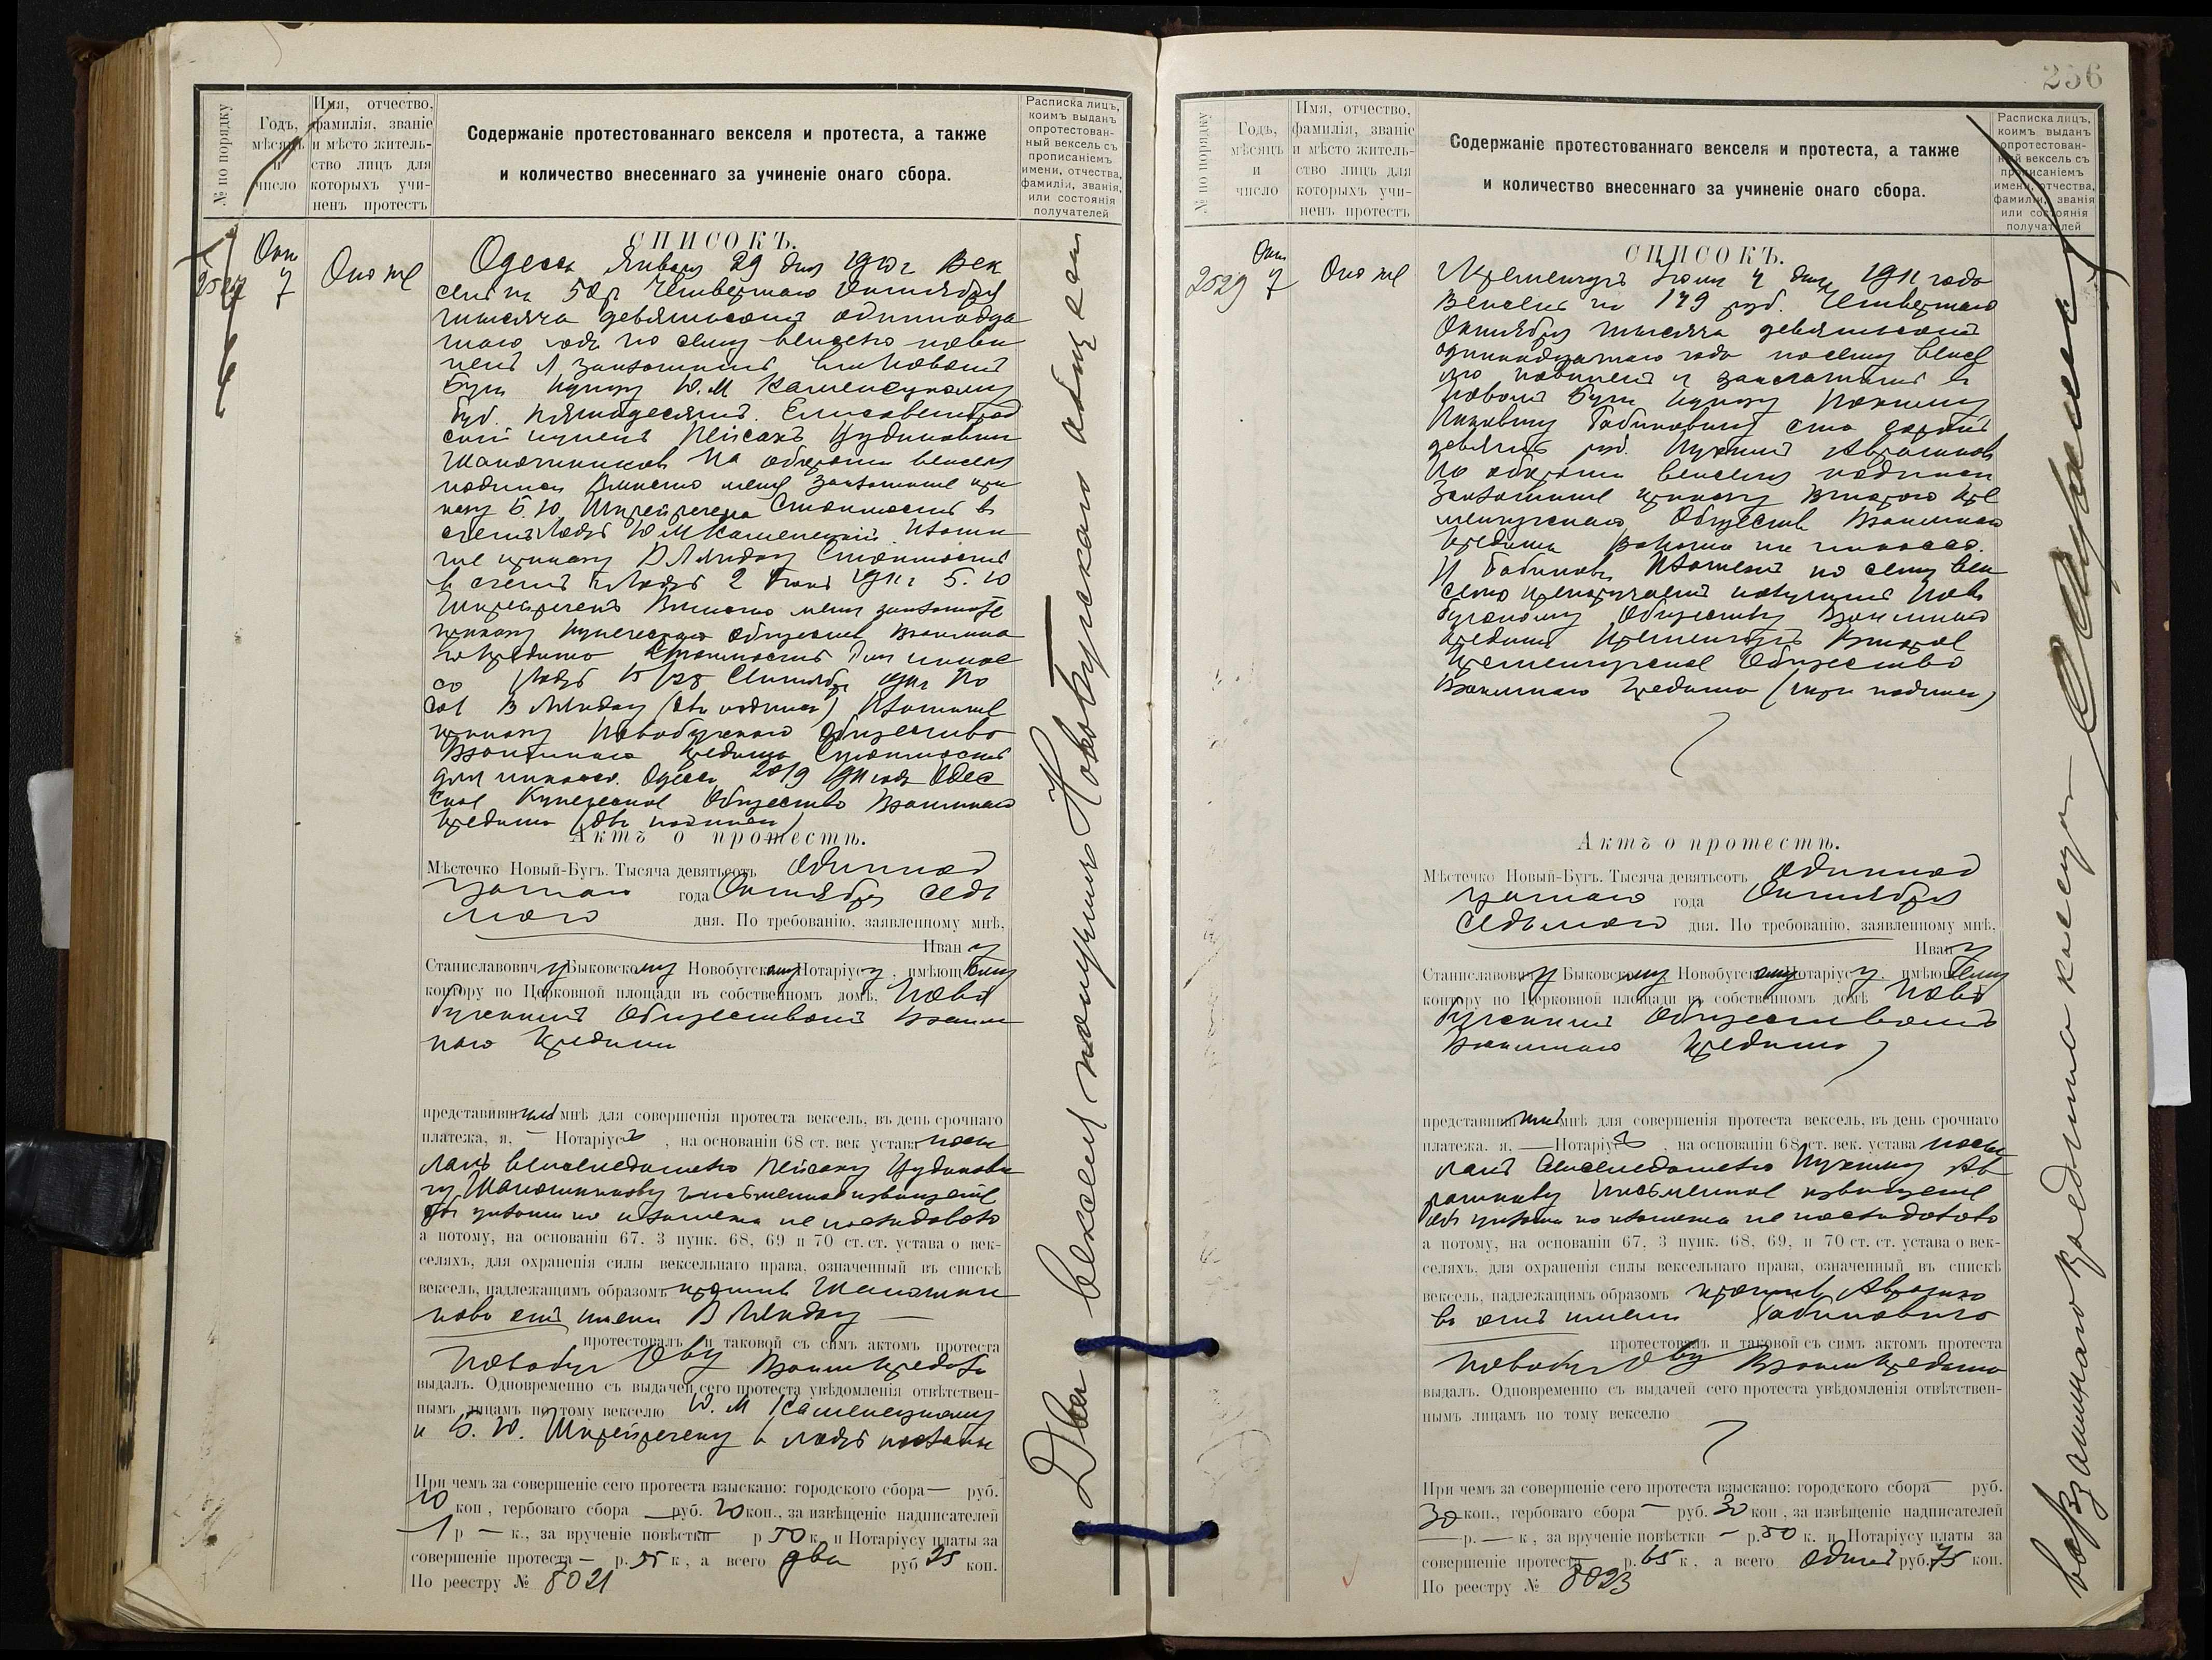 № по порядку
Годъ,
мѣсяцъ
и
число
Имя, отчество,
фамилія, званіе
и мѣсто житель-
ство лицъ для
которыхъ учи-
ненъ протестъ
Содержаніе протестованнаго векселя и протеста, а также
и количество внесеннаго за учиненіе онаго сбора.
Расписка лицъ,
коимъ выданъ
опротестован-
ный вексель съ
прописаніемъ
имени, отчества,
фамиліи, званія,
или состоянія
получателей
Окт
7
Оно же
СПИСОКЪ.
Одесса Января 29 дня 1910 г Век
сель на 50 р Четвертаго Октября
тысяча девятьсотъ одиннадца
таго года по сему векселю пови
ненъ я заплатить въ Новомъ
Бугѣ приказу Ю. М Каменецкому
руб. пятьдесятъ. Елисаветград
скій купецъ Пейсахъ
на оборотѣ векселя
подписи Вмѣсто меня заплатите при
казу Б. Ю. Шкрейречена Стоимость въ
счетъ Лодзь Ю М Каменецкій Платы
те приказу В Ляндау Стоимость
въ счетъ Лодзь 2 1911 г Б. Ю
Вмѣсто меня заплатите
приказу Купеческаго Общества Взаимна
го Кредита Стоимость для инкас
со Лодзь 15/28 Сентября 1911 г По
В Ляндау (двѣ подписи) Платите
приказу Новобугскаго Общества
Взаимнаго Кредита Стоимость
для инкассо. Одесса 20/9 1911 года Одес
ское Купеческое Общество Взаимнаго
Кредита (двѣ подписи)
Актъ о протестѣ.
Мѣстечко Новый-Бугъ. Тысяча девятьсотъ одиннад
цатаго года Октября седь
мого дня. По требованію, заявленному мнѣ,
Иван у
Станиславович у Быковскому Новобугскому Нотаріусу, имѣющему
контору по Церковной площади въ собственномъ домѣ, Ново
бугскимъ Обществомъ Взаим
наго Кредита
представившимъ мнѣ для совершенія протеста вексель, въ день срочнаго
платежа, я, — Нотаріусъ, на основаніи 68 ст. век устава посы
лалъ векселедателю Пейсаху
письменное извѣщеніе
но платежа не послѣдовало
а потому, на основаніи 67, 3 пунк. 68, 69 и 70 ст. ст. устава о век-
селяхъ, для охраненія силы вексельнаго права, означенный въ спискѣ
вексель, надлежащимъ образомъ противъ
отъ имени В Ляндау —
протестовалъ и таковой съ симъ актомъ протеста
Новобуг О-ву Взаим Кредита
выдалъ. Одновременно съ выдачей сего протеста увѣдомленія отвѣтствен-
нымъ лицамъ по тому векселю Ю. М Каменецкому
и Б. Ю. въ Лодзь посланы
При чемъ за совершеніе сего протеста взыскано: городского сбора — руб.
10 коп., гербоваго сбора — руб. 20 коп., за извѣщеніе надписателей
1 р — к., за врученіе повѣстки — р 50 к. и Нотаріусу платы за
совершеніе протеста — р. 55 к, а всего два руб 35 коп.
По реестру № 8021
Два векселя получилъ Новобугскаго общества
256
№ по порядку
Годъ,
мѣсяцъ
и
число
Имя, отчество,
фамилія, званіе
и мѣсто житель-
ство лицъ для
которыхъ учи-
ненъ протестъ
Содержаніе протестованнаго векселя и протеста, а также
и количество внесеннаго за учиненіе онаго сбора.
Расписка лицъ,
коимъ выданъ
опротестован-
ный вексель съ
прописаніемъ
имени, отчества,
фамиліи, званія
или состоянія
получателей
2529
Окт
7
Оно же
СПИСОКЪ.
Кременчугъ 4 дня 1911 года
Вексель на 149 руб. Четвертаго
Октября тысяча девятьсотъ
одиннадцатаго года по сему вексе
лю повиненъ я заплатить въ
Новомъ Бугѣ приказу
Рабиновичу сто сорокъ
девять руб.
На оборотѣ векселя подписи
Заплатите приказу Второго Кре
менчугскаго Общества Взаимнаго
Кредита Валюта на инкассо.
Рабинович Платежъ по сему век
селю получить Ново
бугскому Обществу Взаимнаго
Кредита Кременчугъ Второе
Кременчугское Общество
Взаимнаго Кредита (три подписи)
Актъ о протестѣ.
Мѣстечко Новый-Бугъ. Тысяча девятьсотъ одиннад
цатаго года Октября
седьмого дня. По требованію, заявленному мнѣ,
Иван у
Станиславовичу Быковскому Новобугскому Нотаріусу, имѣющему
контору по Церковной площади въ собственномъ домѣ Ново
бугскимъ Обществомъ
Взаимнаго Кредита
представившимъ мнѣ для совершенія протеста вексель, въ день срочнаго
платежа. я, — Нотаріусъ, на основаніи 68 ст. век. устава посы
лалъ векселедателю
письменное извѣщеніе
но платежа не послѣдовало
а потому, на основаніи 67, 3 пунк. 68, 69, и 70 ст. ст. устава о век-
селяхъ, для охраненія силы вексельнаго права, означенный въ спискѣ
вексель, надлежащимъ образомъ противъ
отъ имени Рабиновича
протестовалъ и таковой съ симъ актомъ протеста
Новобуг О-ву Взаим Кредита
выдалъ. Одновременно съ выдачей сего протеста увѣдомленія отвѣтствен-
нымъ лицамъ по тому векселю
При чемъ за совершеніе сего протеста взыскано: городского сбора — руб.
30 коп., гербоваго сбора — руб. 30 коп, за извѣщеніе надписателей
— р. — к, за врученіе повѣстки — р. 50 к. и Нотаріусу платы за
совершеніе протеста — р. 65 к, а всего одинъ руб. 75 коп.
По реестру № 8023
взаимнаго кредита